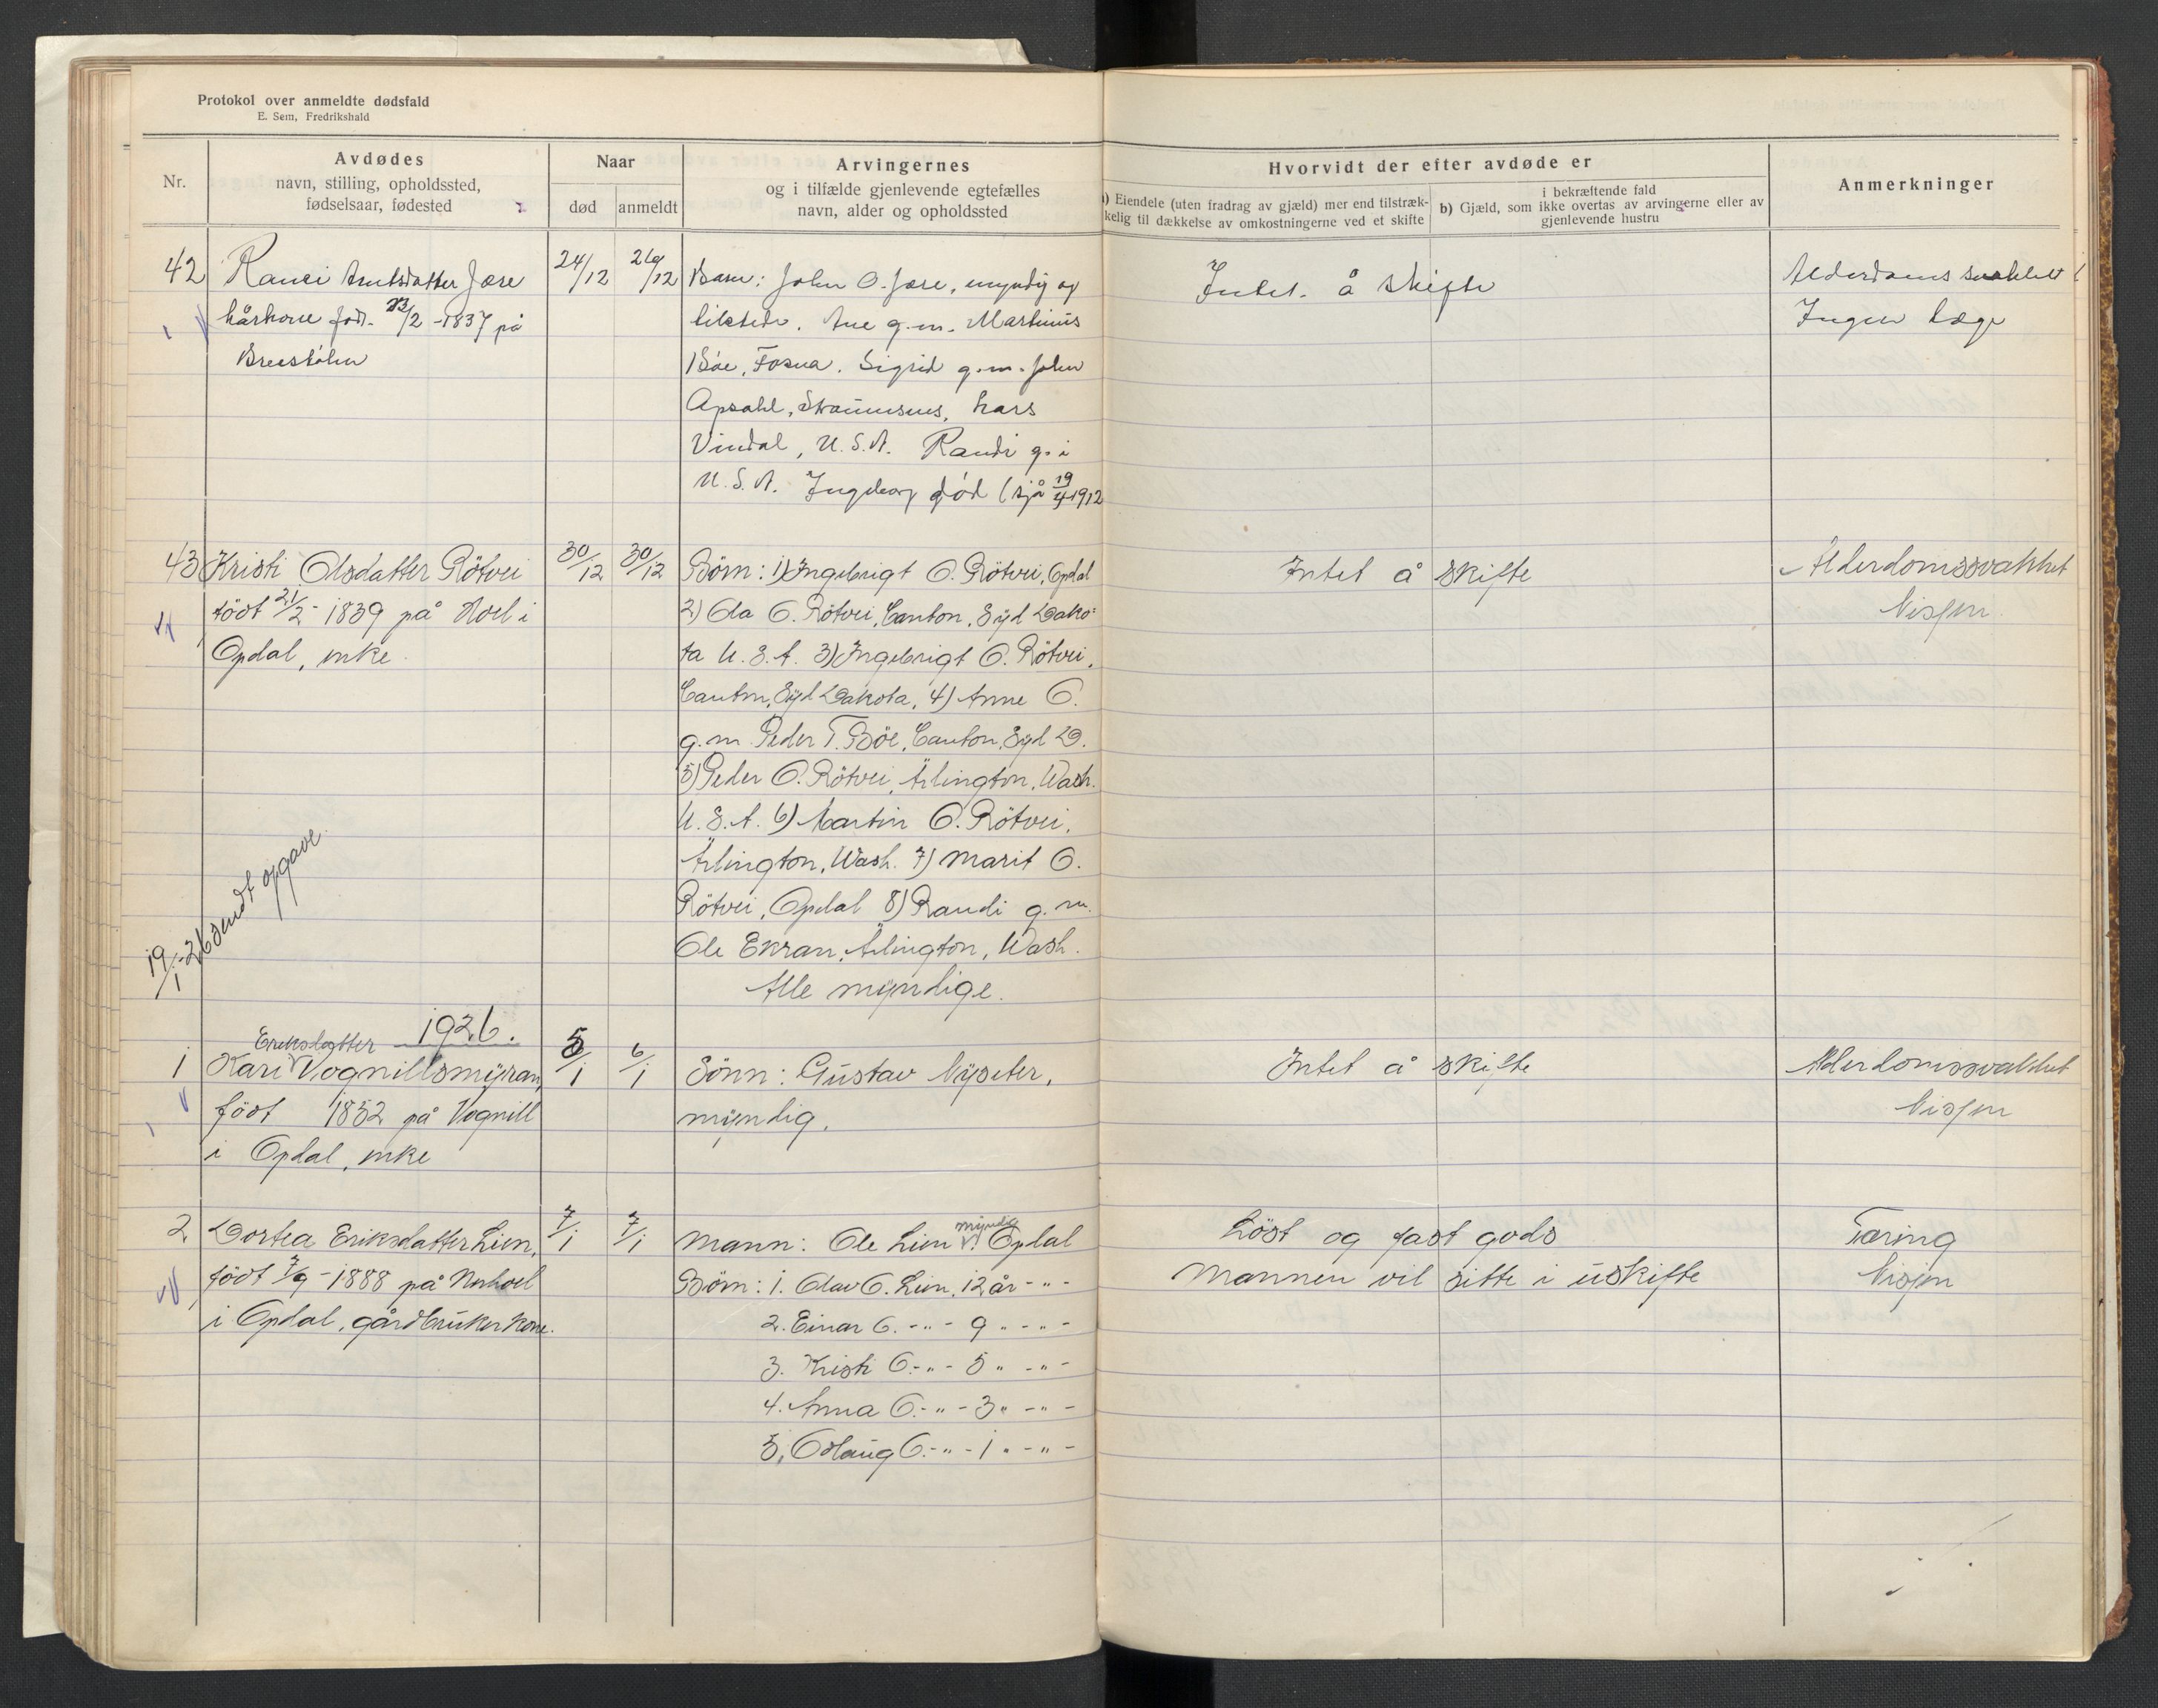 Protokol over anmeldte dødsfald
E. Sem, Fredrikshald
Nr.
Avdødes
navn, stilling, opholdssted,
fødselsaar, fødested
Naar
død
anmeldt
Arvingernes
og i tilfælde gjenlevende egtefælles
navn, alder og opholdssted
Hvorvidt der efter avdøde er
a) Eiendele (uten fradrag av gjæld) mer end tilstræk-
kelig til dækkelse av omkostningerne ved et skifte
i bekræftende fald
b) Gjæld, som ikke overtas av arvingerne eller av
gjenlevende hustru
Anmerkninger
42
Arntsdatter Jære
kårkone fød. /2 -1837 på
24/12
/12
Barn: John O. Jære, myndig og
tilstede. Ane g.m. Martinus
Bøe, Fosna. Sigrid g.m. John
Lars
Vindal, U.S.A. Randi g. i
U.S.A. Ingeborg død (sjå 19/4 1912
Intet å skifte
Ingen læge
43
Kristi Olsdatter Rötvei
födt 21/2 - 1839 på Hoel i
Opdal, enke.
30/12
30/12
Börn: 1) Ingebrigt O. Rötvei, Opdal
2) Ola O. Rötvei, Canton, Syd Dako=
ta U.S.A. 3) Ingebrigt O. Rötvei,
Canton, Syd Dakota, 4) Anne O.
g.m. Peder T. Böe, Canton, Syd D.
5) Peder O. Rötvei, Arlington, Wash.
U.S.A. 6) Martin O. Rötvei,
Arlington, Wash. 7) Marit O.
Rötvei, Opdal 8) Randi g.m.
Ole Ekran, Arlington, Wash.
Alle myndige.
Intet å skifte
Alderdomssvakhet
Nisjen
19/1-26 sendt opgave
1926.
1
Eriksdatter
Kari Vognillsmyran,
födt 1852 på Vognill
i Opdal, enke
5/1
6/1
Sönn: Gustav Nyseter,
myndig.
Intet å skifte
Alderdomssvakhet
Nisjen
2
Dortea Eriksdatter Lien,
födt 7/9 - 1888 på
i Opdal, gårdbrukerkone.
7/1
7/1
myndig
Mann: Ole Lien, Opdal
Börn: 1. Olav O. Lien, 12 år -"-
2. Einar O. -"- 9 " -"-
3. Kristi O. -"- 5 " -"-
4. Anna O. -"- 3 " -"-
5. Odlaug O. -"- 1 " -"-
Löst og fast gods
Mannen vil sitte i uskifte
Tæring
Nisjen